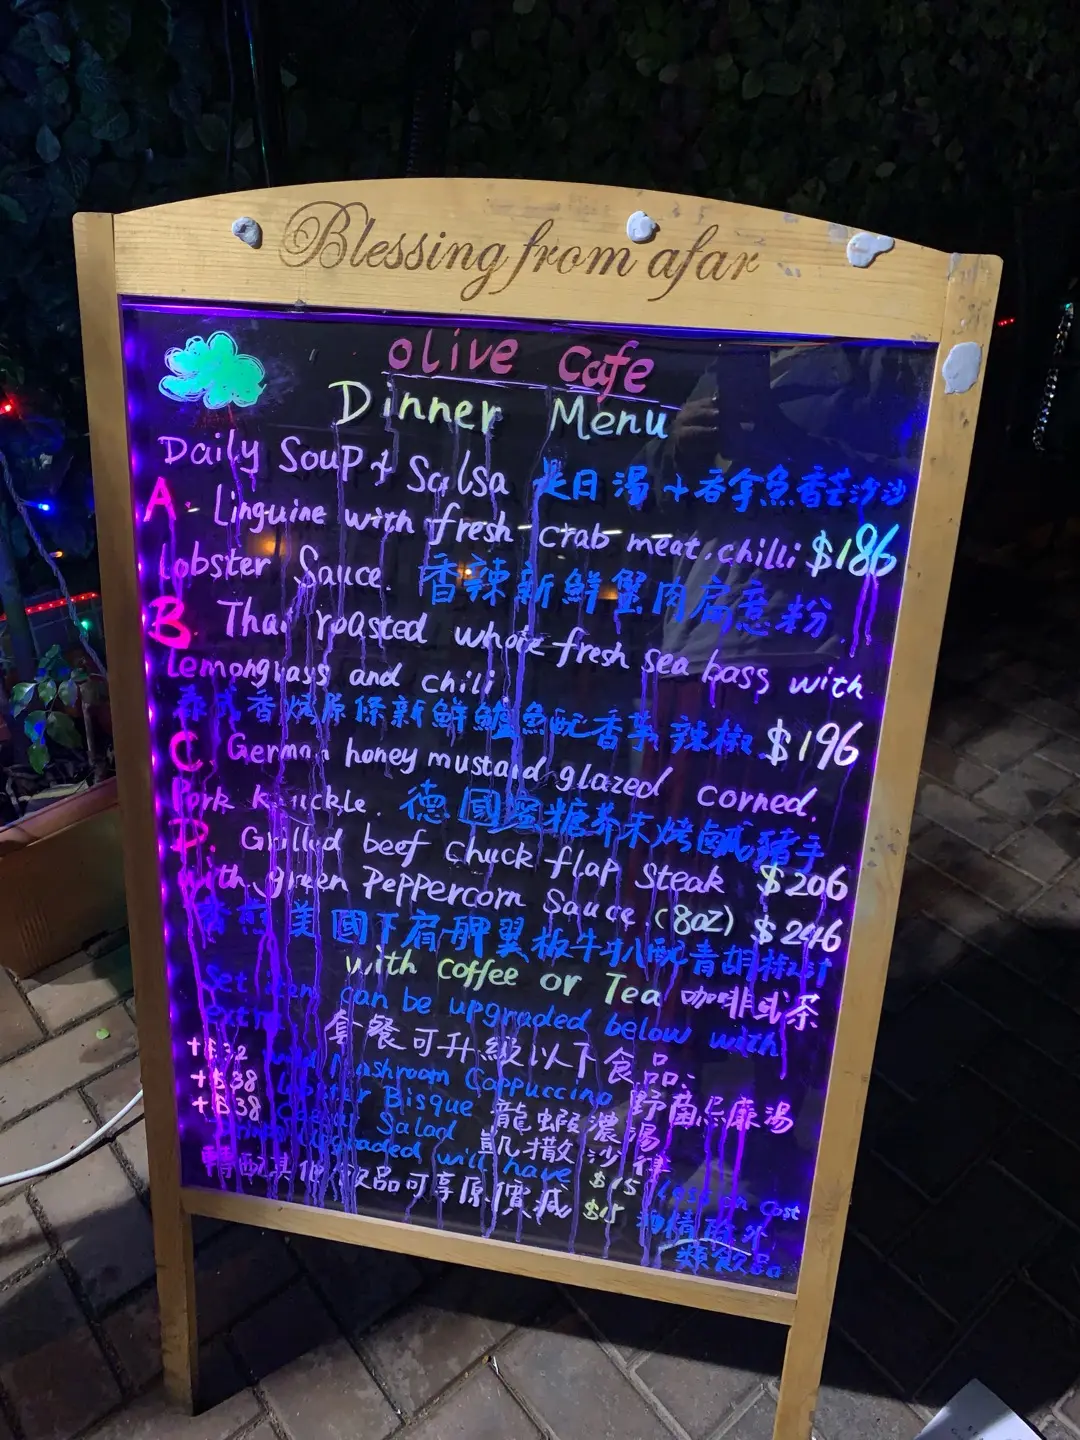 Blessing from afar
Olive Cafe
Dinner Menu
Daily Soup + Salsa 是日湯 + 吞拿魚香芒沙沙
A. Linguine with fresh crab meat, chilli $186
Lobster Sauce. 香辣新鮮蟹肉扁意粉
B Thai roasted whole fresh sea bass with
lemongrass and chili
泰式香燒原條新鮮鱸魚配香茅辣椒 $196
C. German honey mustard glazed corned.
Pork knuckle. 德國蜜糖芥末烤鹹豬手
D. Grilled beef chuck flap steak $206
with green Peppercorn Sauce (8oz) $246
香煎美國下肩胛翼板牛扒配青胡椒汁
with coffee or Tea 咖啡或茶
Set item can be upgraded below with
extra 套餐可升級以下食品:
+$32 Mushroom Cappuccino 野菌忌廉湯
+$38 Lobster Bisque 龍蝦濃湯
+$38 Salad 凱撒沙律
upgraded will have $15 less in cost
轉配其他飲品可享原價減 $15 酒精 除外
類飲品